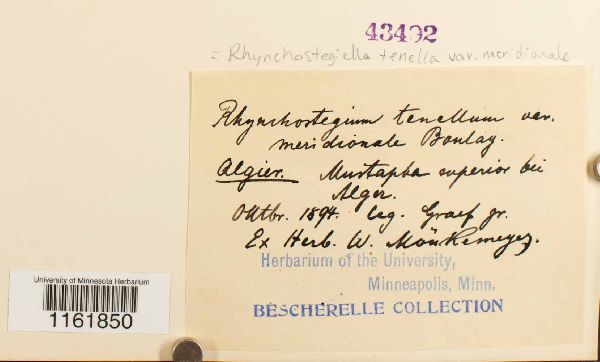 43402
= Rhynchostegiella tenella var. meridionale
Rhynchostegium tenellum var.
meridionale Boulay.
Algier. Mustapha superior bei
Alger.
Oktbr. 1894. leg. Graef jr.
Ex Herb. W. Mönkemeyer.
Herbarium of the University,
Minneapolis, Minn.
BESCHERELLE COLLECTION
University of Minnesota Herbarium
1161850